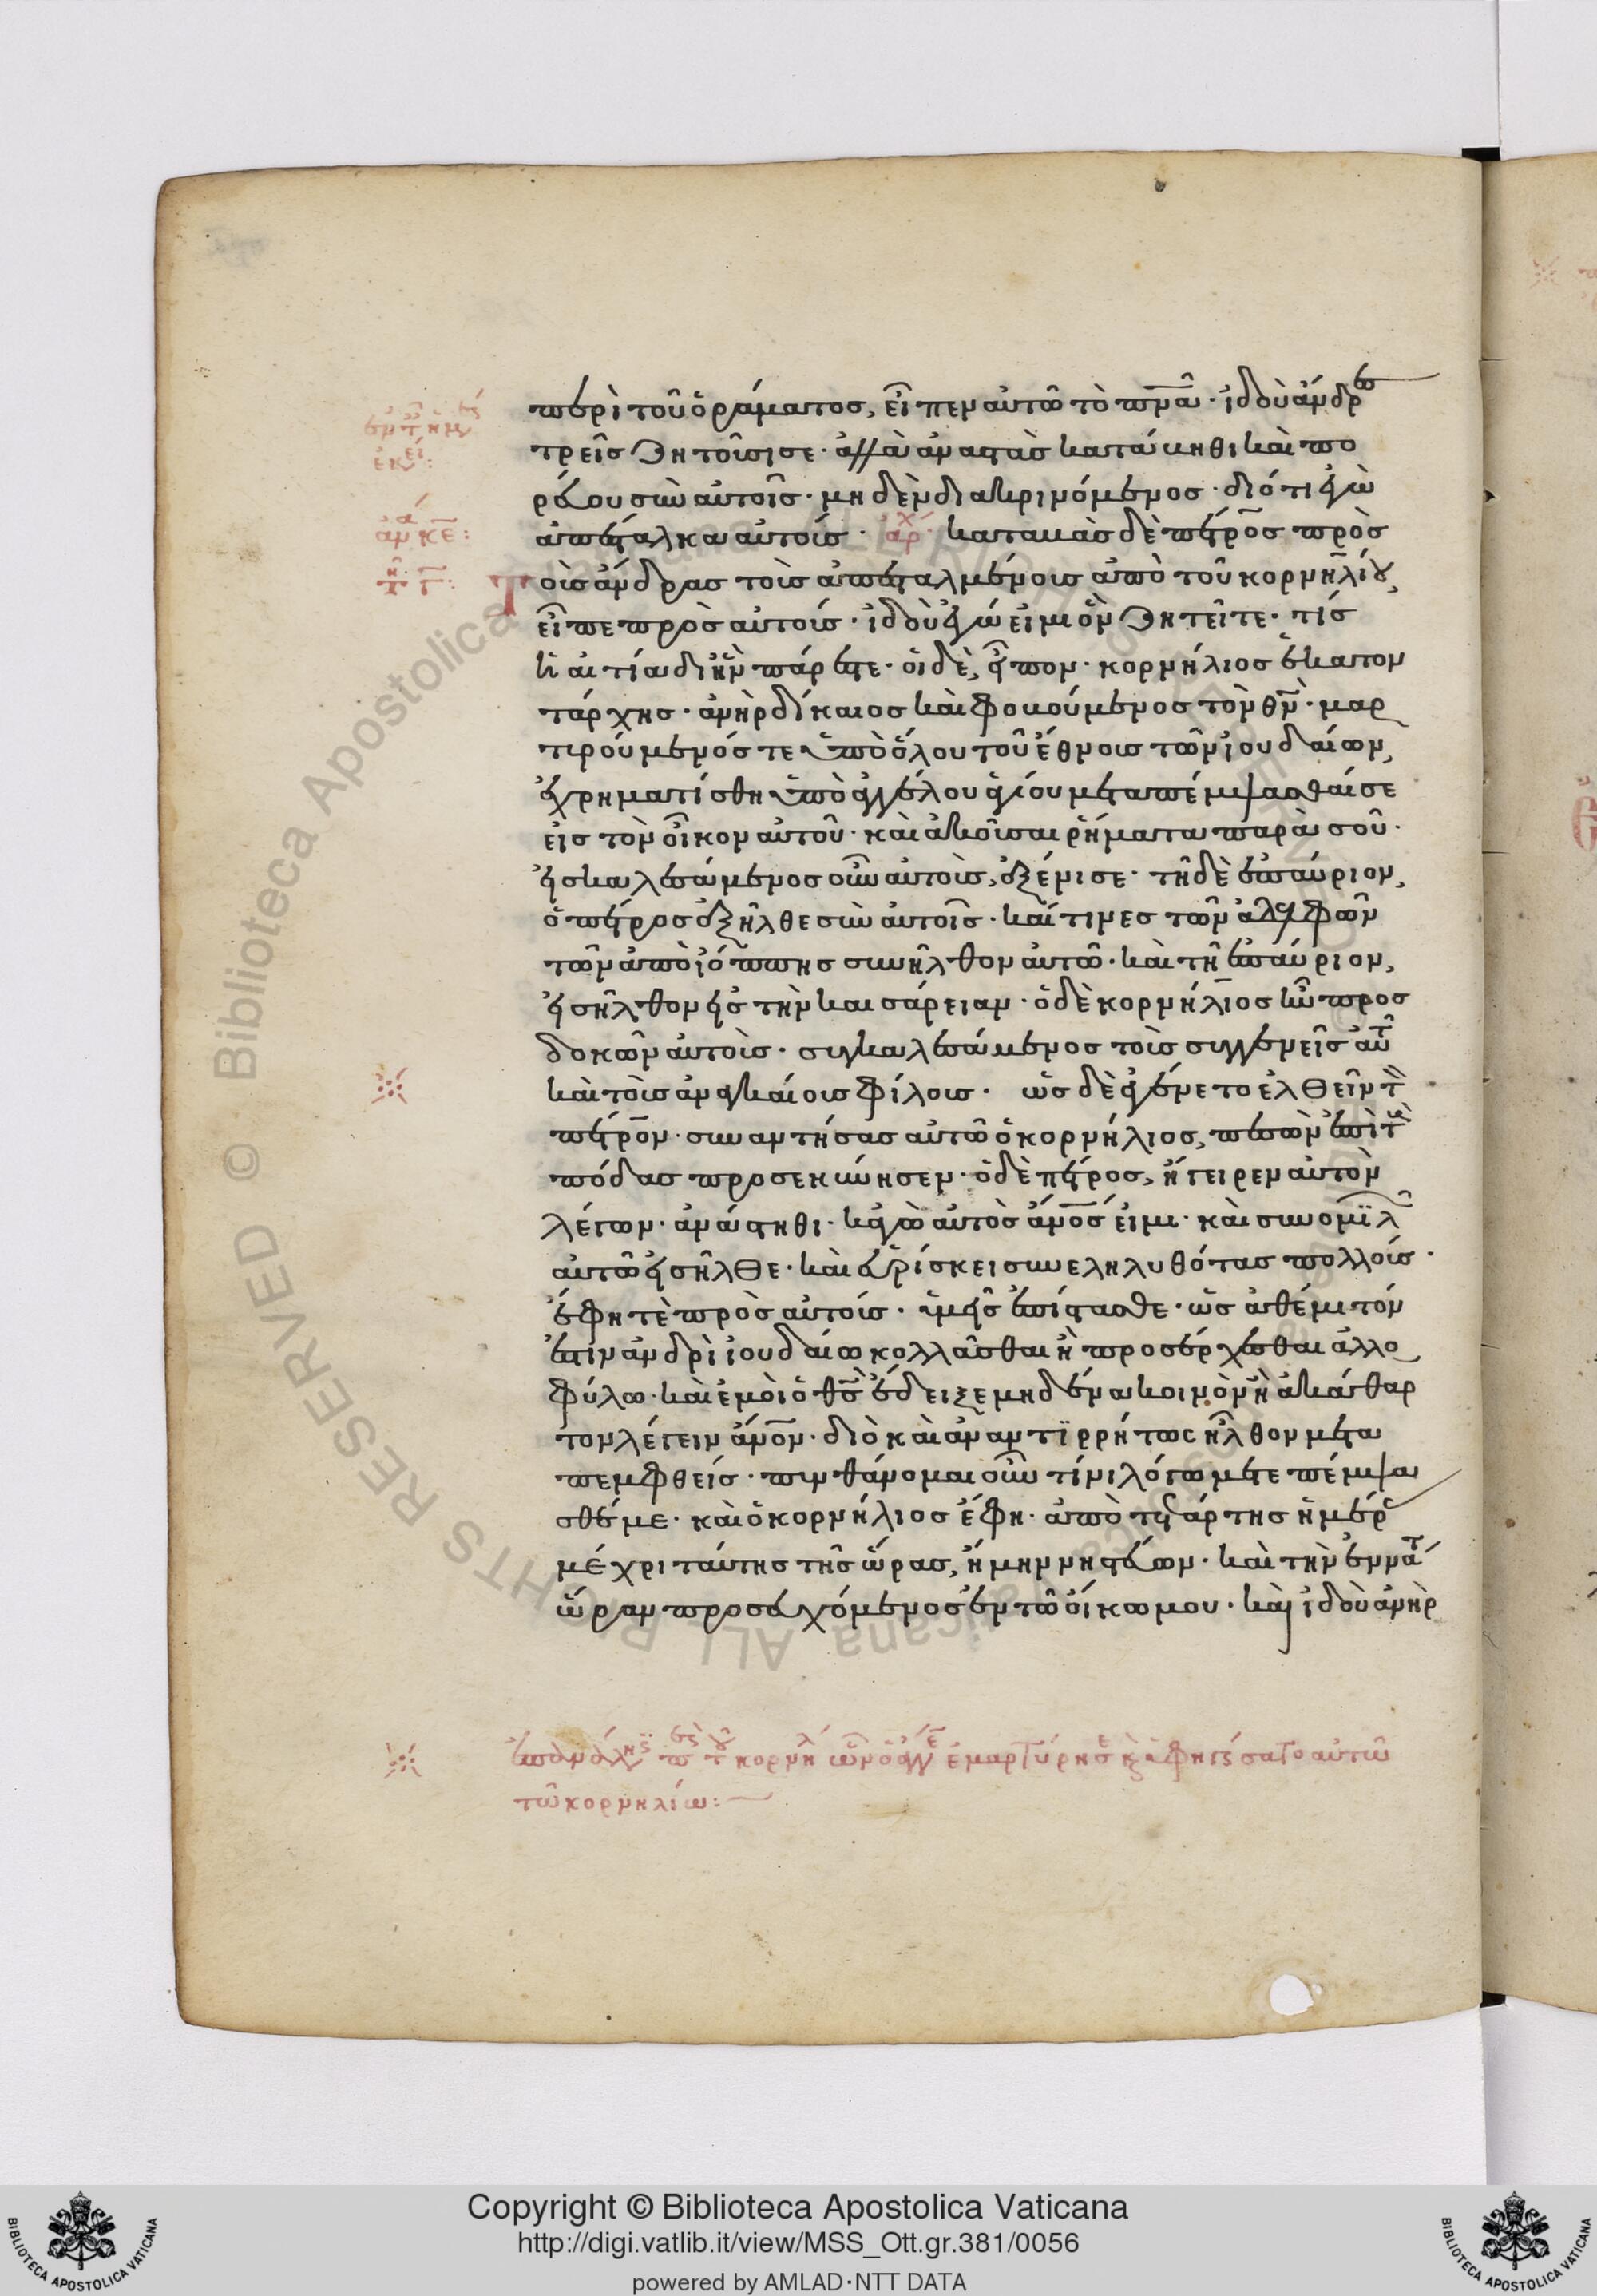 περὶ τοῦ ὁράματος, εἶπεν αὐτῶ τὸ πνᾶ· ἰδοὺ ἄνδρες
τρεῖς ζητοῦσι σε· ἀλλὰ ἀναστὰς κατάβηθι καὶ πο
ρεύου σὺν αὐτοῖς· μηδὲν διακρινόμενος· διότι ἐγὼ
ἀπέσταλκα αὐτούς· ἀρχ καταβὰς δὲ πέτρος πρὸς
τοὺς ἄνδρας τοὺς ἀπεσταλμένους ἀπὸ τοῦ κορνηλίου,
εἶπε πρὸς αὐτούς· ἰδοὺ ἐγώ εἰμι ὃν ζητεῖτε· τίς
ἡ αἰτία δι ἣν πάρεστε· οἱ δὲ, εἶπον· κορνήλιος ἑκατον
τάρχης· ἀνὴρ δίκαιος καὶ φοβούμενος τὸν θν· μαρ
τυρούμενός τε ὑπὸ ὅλου τοῦ ἔθνους τῶν ἰουδαίων,
ἐχρηματίσθη ὑπὸ ἀγγέλου ἁγίου μεταπέμψασθαί σε
εἰς τὸν οἶκον αὐτοῦ· καὶ ἀκοῦσαι ῥήματα παρὰ σοῦ·
εἰσκαλεσάμενος οὖν αὐτοὺς, ἐξένισε· τῆ δὲ ἐπαύριον,
ὁ πέτρος ἐξῆλθε σὺν αὐτοῖς· καί τινες τῶν ἀδελφῶν
τῶν ἀπὸ ἰόππης συνῆλθον αὐτῶ· καὶ τῆ ἐπαύριον,
εἰσῆλθον εἰς τὴν καισάρειαν· ὁ δὲ κορνήλιος ἦν προσ
δοκῶν αὐτοὺς· συγκαλεσάμενος τοὺς συγγενεῖς αὐτ
καὶ τοὺς ἀναγκαίους φίλους· ὡς δὲ ἐγένετο ἐλθεῖν τὸν
πέτρον· συναντήσας αὐτῶ ὁ κορνήλιος, πεσὼν ἐπὶ τοὺς
πόδας προσεκύνησεν· ὁ δὲ πέτρος, ἤγειρεν αὐτὸν
λέγων· ἀνάστηθι· κἀγὼ αὐτὸς ἄνος εἰμι· καὶ συνομιλ
αὐτῶ εἰσῆλθε· καὶ εὑρίσκει συνεληλυθότας πολλούς·
ἔφη τὲ πρὸς αὐτούς· ὑμεῖς ἐπίστασθε· ὡς ἀθέμιτόν
ἐστιν ἀνδρὶ ἰουδαίω κολλᾶσθαι ἢ προσέρχεσθαι ἀλλο
φύλω· καὶ ἐμοὶ ὁ θς ἔδειξε μηδένα κοινὸν ἢ ἀκάθαρ
τον λέγειν ἄνον· διὸ καὶ ἀναντϊρρήτως ἦλθον μετα
πεμφθείς· πυνθάνομαι οὖν τίνι λόγω μετεπέμψα
σθέ με· καὶ ὁ κορνήλιος ἔφη· ἀπὸ τετάρτης ἡμέρ
μέχρι ταύτης τῆς ὥρας, ἤμην νηστεύων· καὶ τὴν ἐννάτ
ὥραν προσευχόμενος ἐν τῶ οἴκω μου· καὶ ἰδοὺ ἀνὴρ
τῶ κορνηλίω:
Copyright © Biblioteca Apostolica Vaticana
http://digi.vatlib.it/view/MSS_Ott.gr.381/0056
powered by AMLAD·NTT DATA